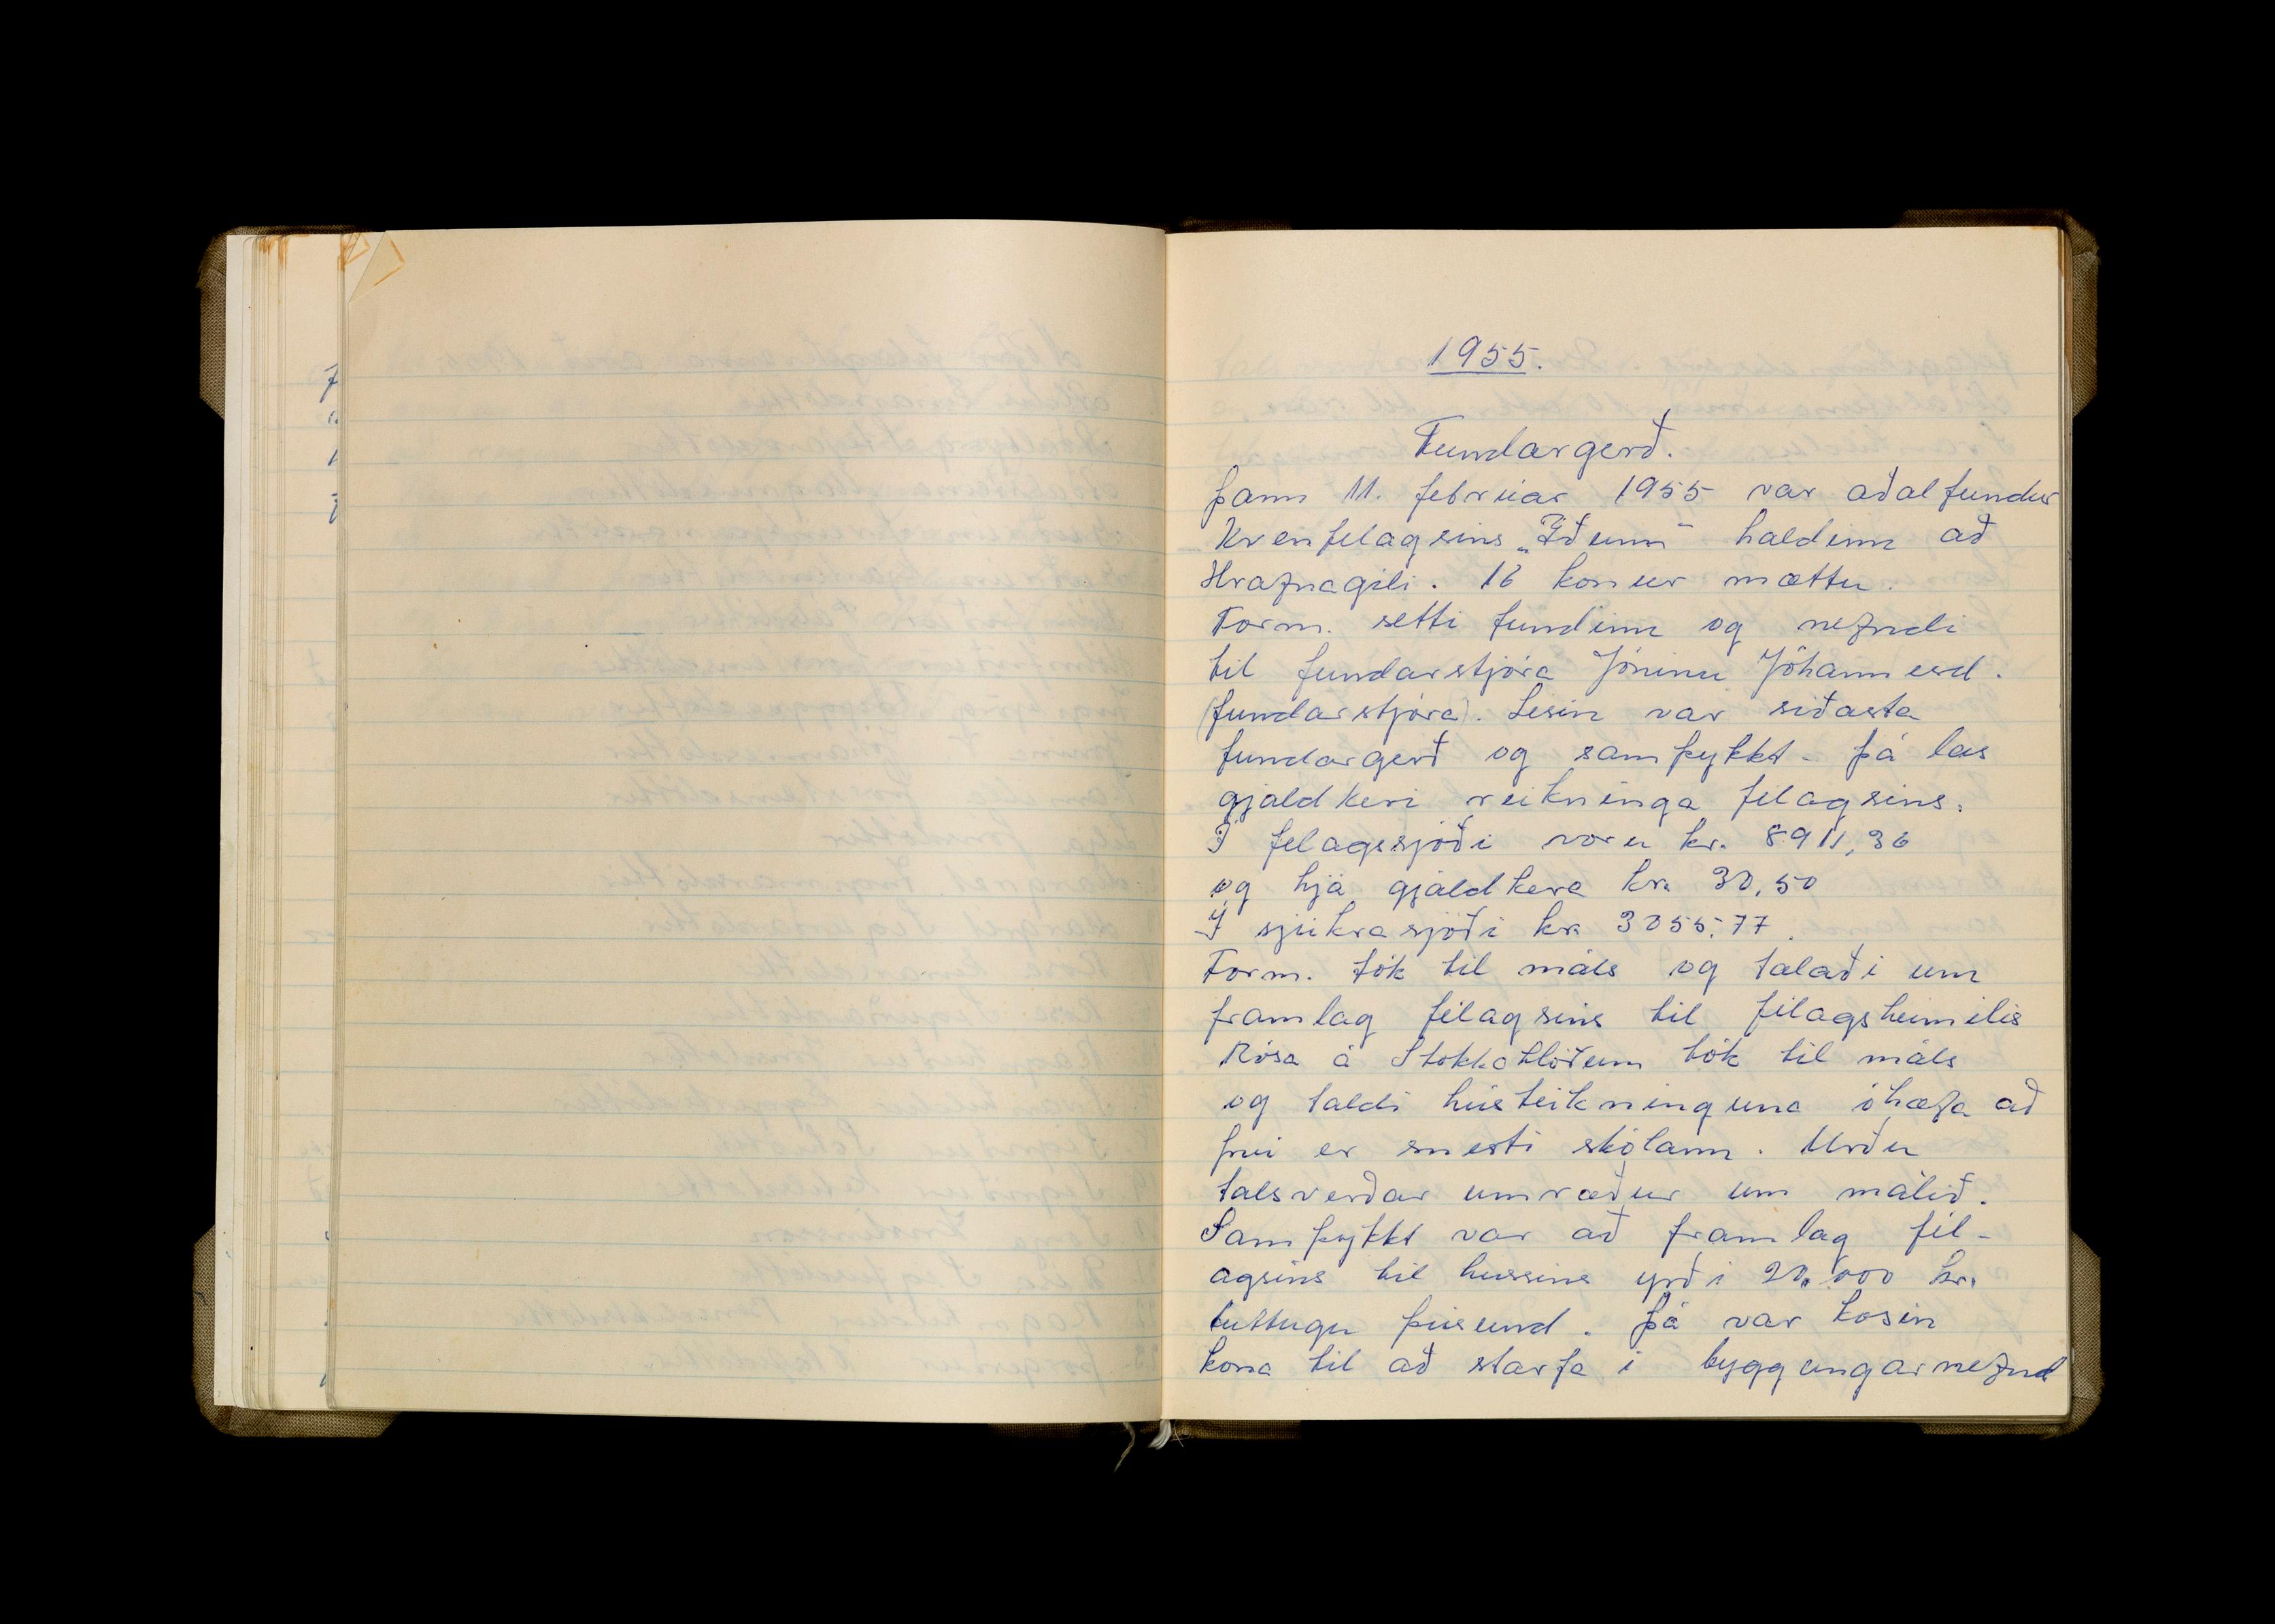 1955.
Fundargerð.
Þann 11. febrúar 1955 var aðalfundur
Kvenfelagsins „Iðunn" haldinn að
Hrafnagili. 16 konur mættu.
Form. setti fundinn og nefndi
til fundarstjóra Jóninu Jóhannesd.
(fundarstjóra). Lesin var siðasta
fundargerð og samþykkt - þá las
gjaldkeri reikninga felagsins.
Í felagssjóði voru kr. 8911,36
og hjá gjaldkera kr. 30,50
Í sjúkrasjóði kr. 3055.77.
Form. tók til máls og talaði um
framlag félagsins til félagsheimilis
Rósa á Stokkahlöðum tók til máls
og taldi hústeikninguna óhæfa að
því er snerti skólann. Urðu
talsverðar umræður um málið.
Samþykkt var að framlag fél-
agsins til hússins yrði 20.000 kr.
tuttugu þúsund. Þá var kosin
kona til að starfa i byggungarnefnd